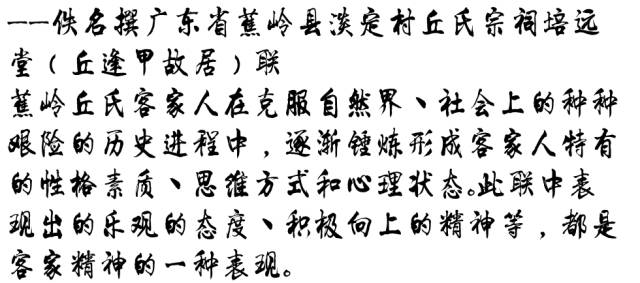 ——佚名撰广东省蕉岭县淡定村丘氏宗祠培远
堂（丘逢甲故居）联
蕉岭丘氏客家人在克服自然界、社会上的种种
艰险的历史进程中，逐渐锤炼形成客家人特有
的性格素质、思维方式和心理状态。此联中表
现出的乐观的态度、积极向上的精神等，都是
客家精神的一种表现。